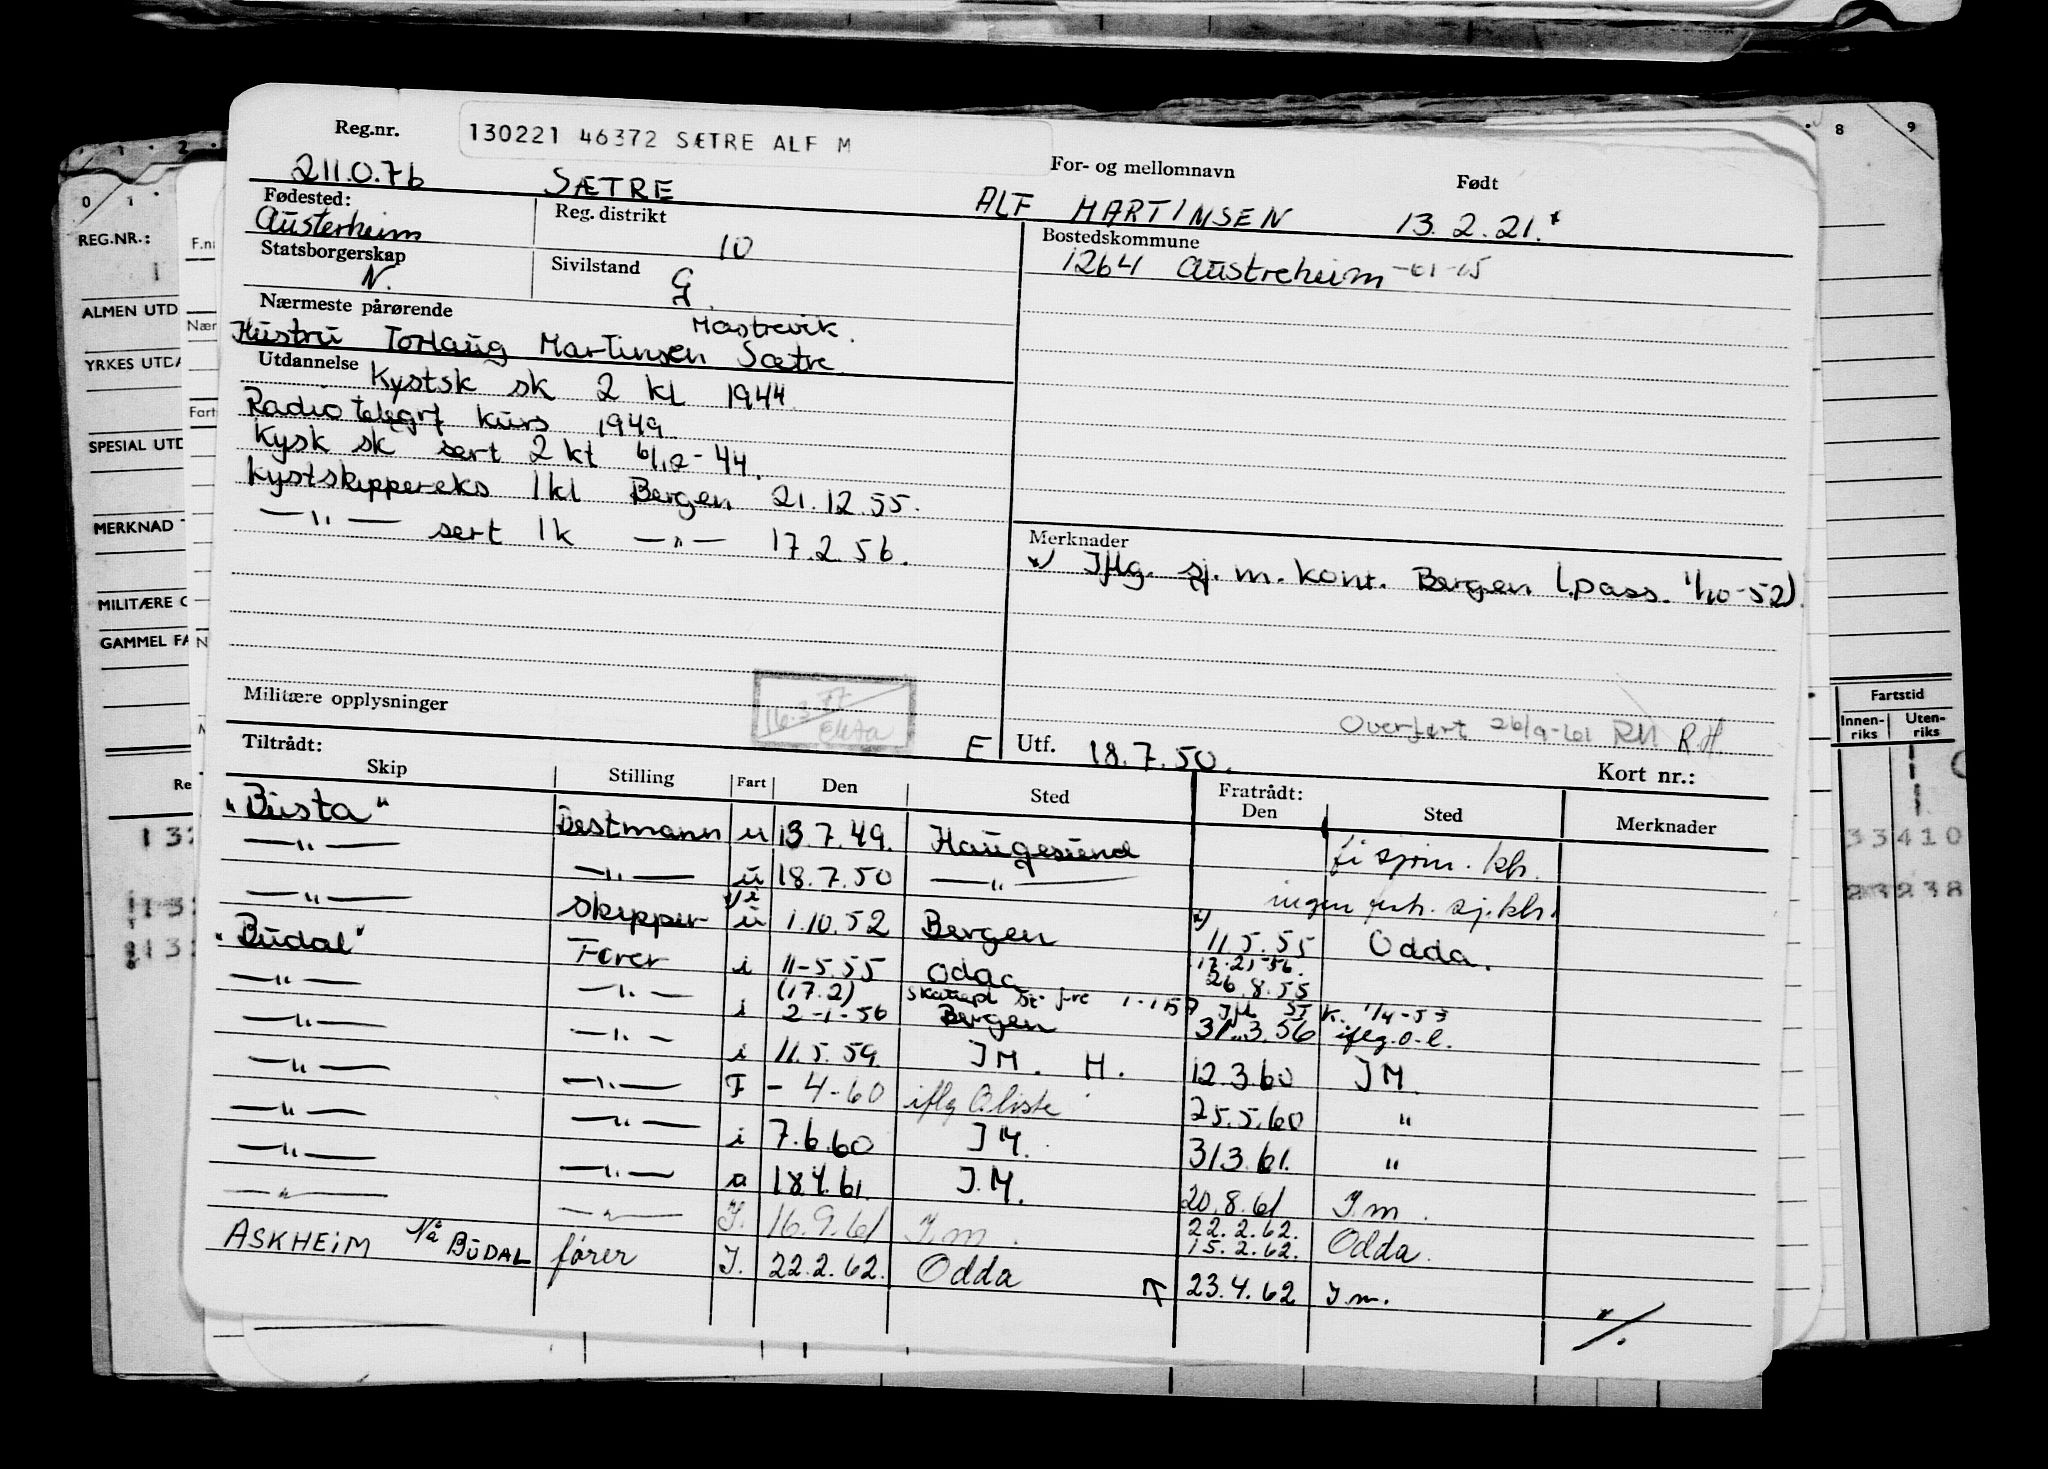 Reg.nr. 130221 46372 SÆTRE ALF M
For- og mellomnavn Født
211.0.76 SÆTRE ALF MARTINSEN 13.2.21.
Fødested: Reg. distrikt Bostedskommune
Austerheim 10 1264 Austreheim
Statsborgerskap Sivilstand
N. G.
Nærmeste pårørende Mastrevik.
Hustru Torlaug Martinsen Sætre.
Utdannelse Kystsk sk 2 kl 1944
Radiotelegrf kurs 1949
Kysk sk sert 2 kl 6/12-44.
Kystskippereks 1kl Bergen 21.12.55.
—"— sert 1k —"— 17.2.56.
Merknader
x) Iflg. sj. m. kont. Bergen (pass. 1/10-52)
Militære opplysninger
Overført 26/9-61 RH R.H.
Tiltrådt: E Utf. 18.7.50. Kort nr.:
Skip Stilling Fart Den Sted Fratrådt: Den Sted Merknader
"Busta" Bestmann u 13.7.49. Haugesund
—"— —"— u 18.7.50 —"—
—"— Skipper u 1.10.52 Bergen x) 11.5.55 Odda.
"Budal" Fører i 11-5.55 Odda 26.8.55
—"— —"— i (17.2) 2-1-56 Bergen 31.3.56 iflg.o-l.
—"— —"— i 11.5.59. IM. H. 12.3.60 IM.
—"— —"— F - 4-60 iflg O.liste 25.5.60 "
—"— —"— i 7.6.60 IM. 31.3.61. "
—"— —"— a 18.4.61. I.M. 20.8.61 I.m.
—"— —"— I. 16.9.61 I.m. 22.2.62. 15.2.62. Odda.
ASKHEIM BUDAL fører I. 22.2.62. Odda 23.4.62 I.m.
·/.
0 1 2 8 9
REG.NR.:
ALMEN UTD
YRKES UTDA
SPESIAL UTD
MERKNAD
MILITÆRE
GAMMEL FA
F.n
Nær
Fart
Fartstid
Innen-riks Uten-riks
33410
23238